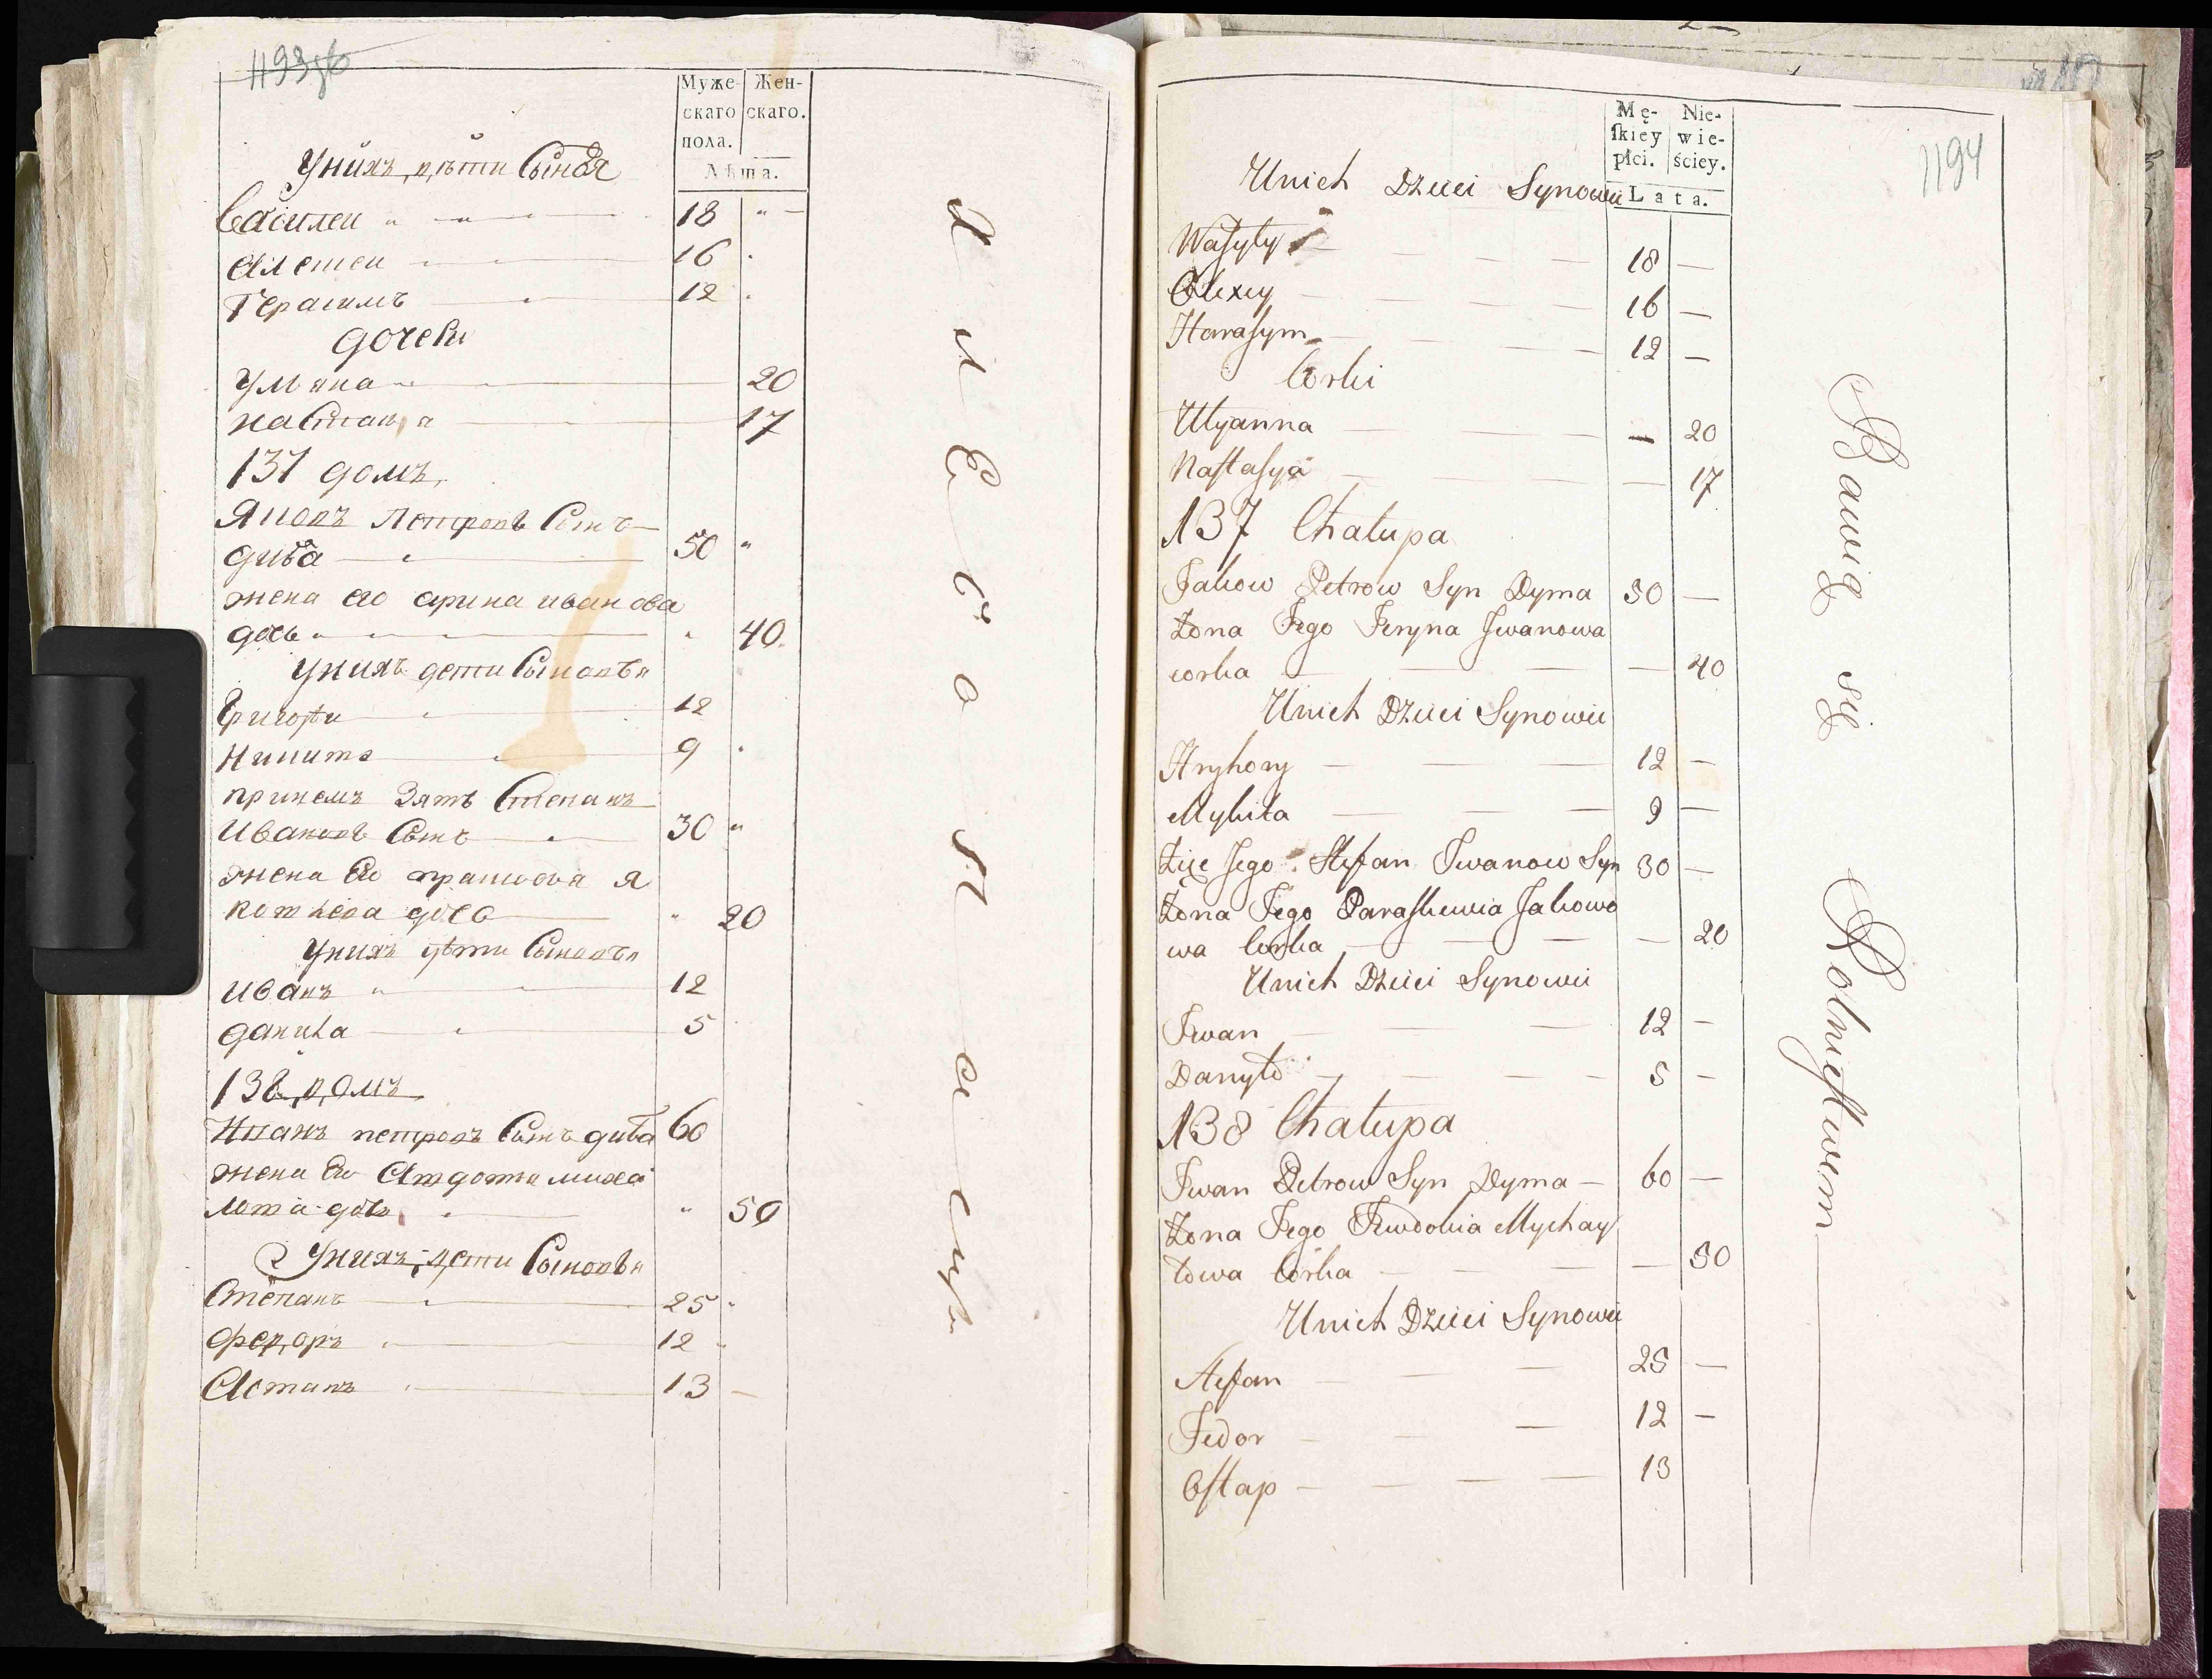 1193об
Муже- Жен-
скаго скаго.
пола.
Лѣта.
Унихъ дѣти Сыновя
Василеи 18
Алексеи 16
Герасимъ 12
дочеки
Уляна 20
настася 17
137 домъ,
Яковъ Петровъ Сынъ
диба 50
жена его арина иванова
дочь 40.
Унихъ дети Сыновья
Григори 12
Никита 9
принемъ Зять Степанъ
Ивановъ Сынъ 30
жена Ево прасковя я
ковлева дочь 20
Унихъ дѣти Сыновья
иванъ 12
данила 5
138 домъ
Иванъ петровъ Сынъ диба 60
жена Ево Авдотя миха
лова дочь 50
Унихъ дети Сыновья
Степанъ 25
Федоръ 12
Астапъ 13
1194
Mę- Nie-
ſkiey wie-
płci. ściey.
Lata.
Unich Dzieci Synowie
Waſyly 18
Olexey 16
Haraſym 12
Corki
Ulyanna 20
Naſtaſya 17
137 Chałupa
Jakow Petrow Syn Dyma 50
Żona Jego Jeryna Jwanowa
corka 40
Unich Dzieci Synowie
Hryhory 12
Mykita 9
Zięc Jego Stefan Jwanow Syn 30
Żona Jego Paraſkewia Jakowo
wa Corka 20
Unich Dzieci Synowie
Jwan 12
Danyło 5
138 Chałupa
Jwan Petrow Syn Dyma 60
Żona Jego Jewdokia Mychay
łowa Corka 50
Unich Dzieci Synowie
Stefan 25
Fedor 12
Oſtap 13
Bawią się Rolnictwem